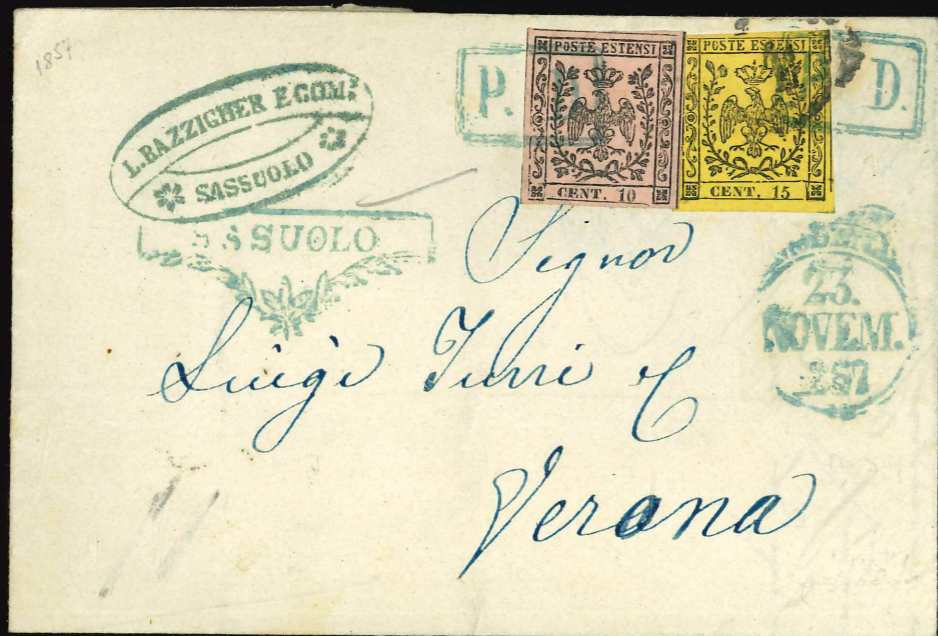 1857
L. BAZZIGHER E COMP.
SASSUOLO
SASUOLO
P. D.
POSTE ESTENSI
CENT. 10
POSTE ESTENSI
CENT. 15
23.
NOVEM.
857
Signor
Luigi Turri e C
Verona